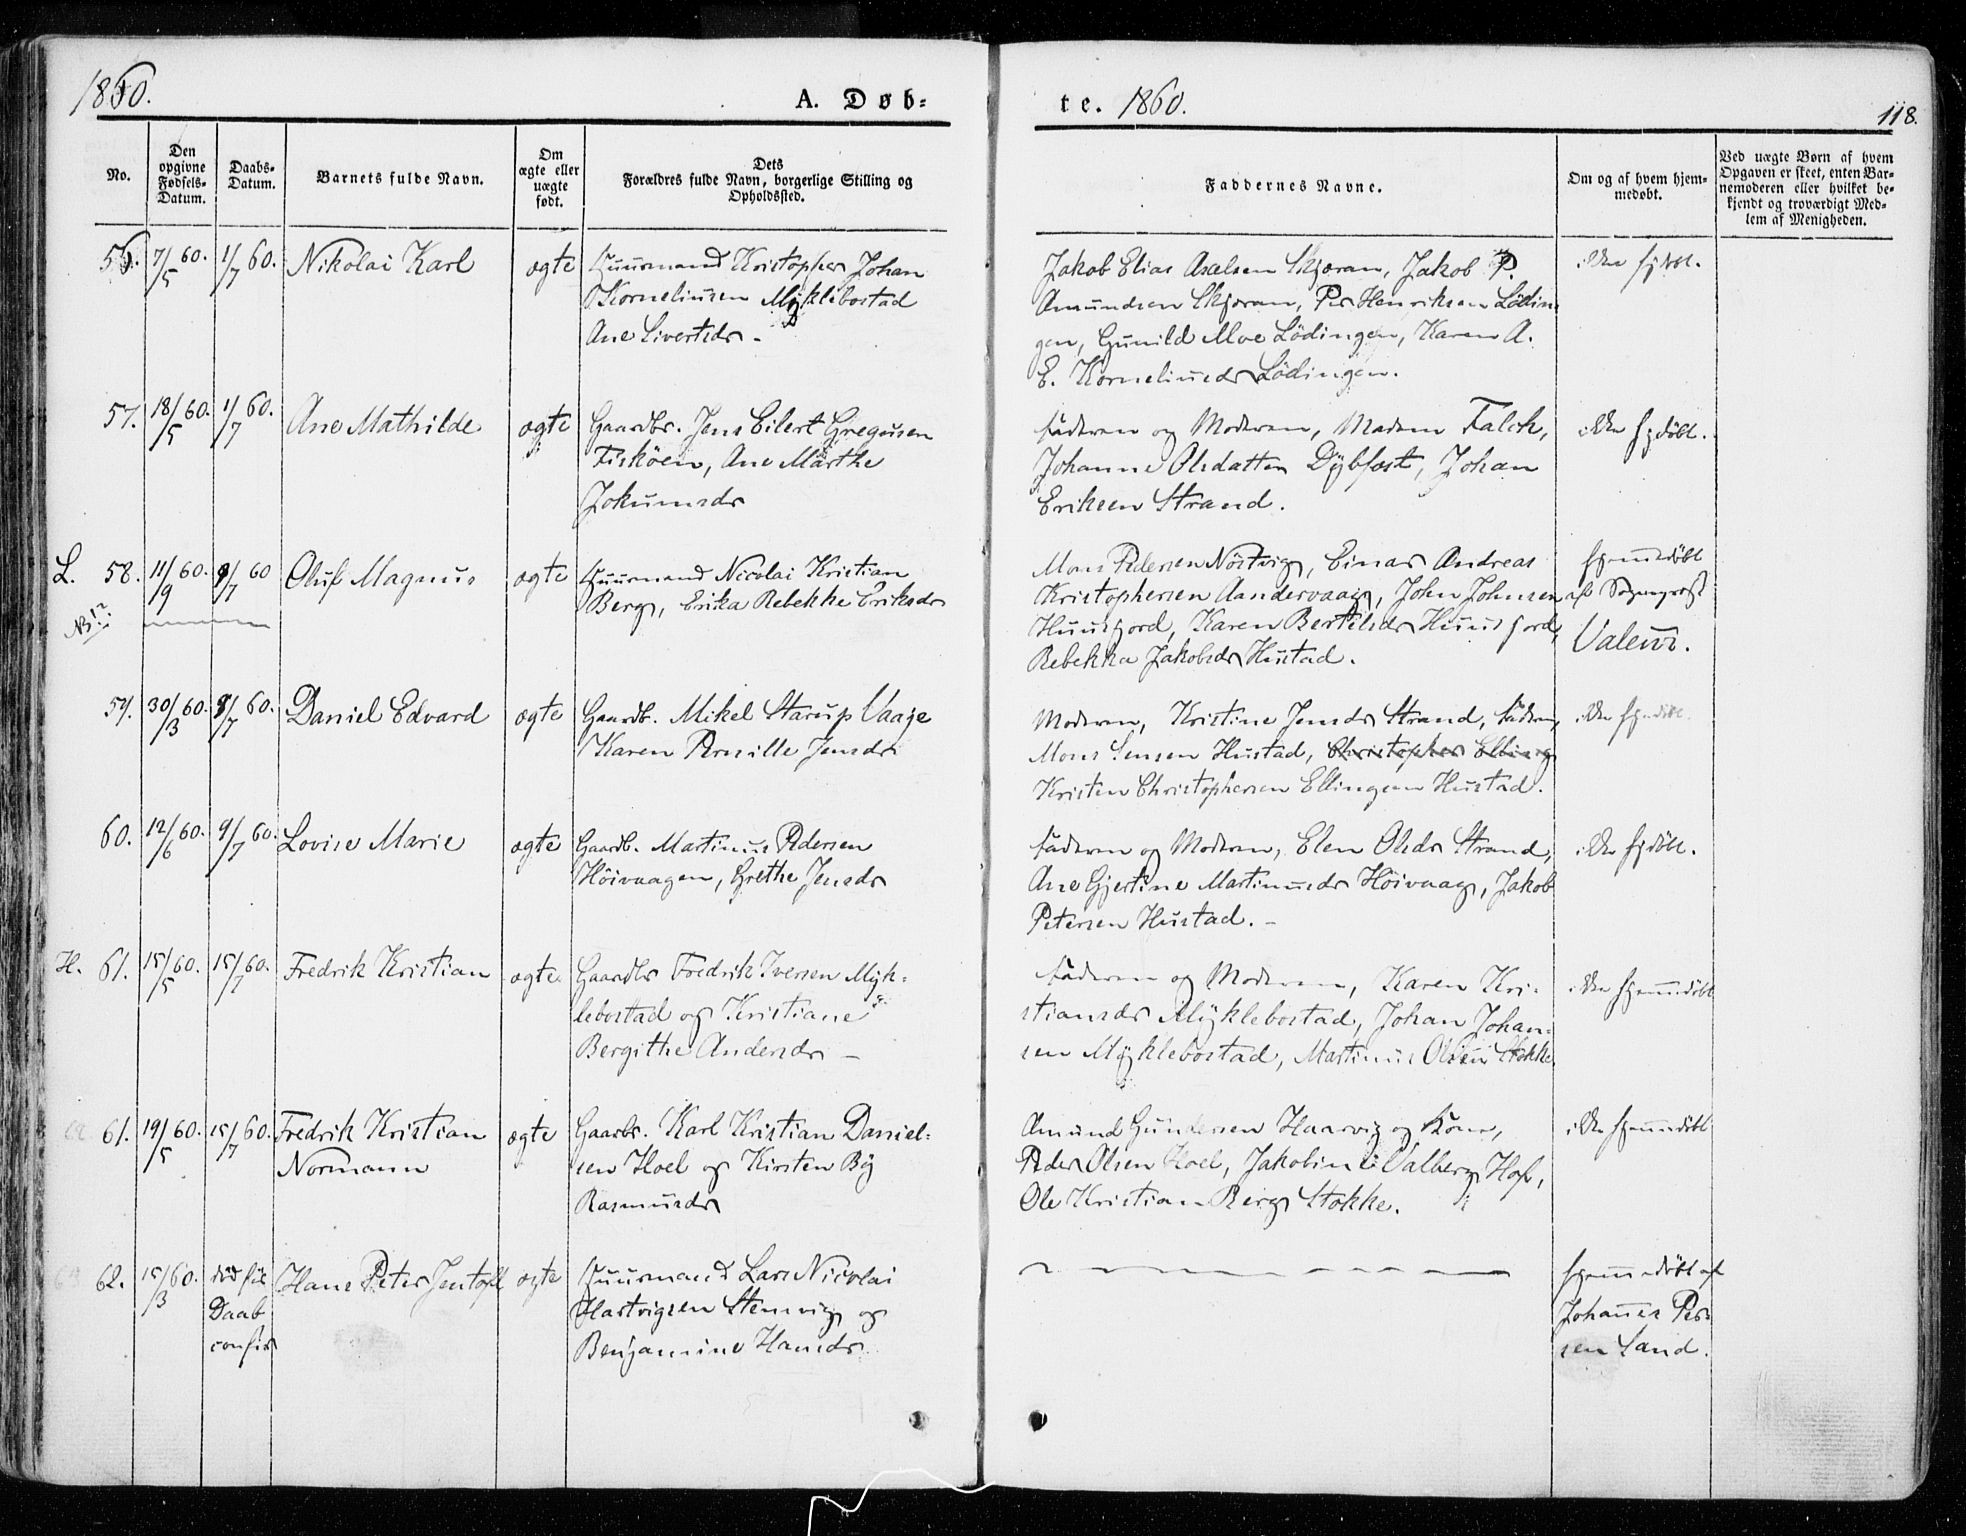 1860.
A. Døb=
te. 1860.
118.
No.
Den
opgivne
Fødsels-
Datum.
Daabs-
Datum.
Barnets fulde Navn.
Om
ægte eller
uægte
født.
Dets
Forældres fulde Navn, borgerlige Stilling og
Opholdssted.
Faddernes Navne.
Om og af hvem hjem-
medøbt.
Ved uægte Børn af hvem
Opgaven er skeet, enten Bar-
nemoderen eller hvilket be-
kjendt og troværdigt Med-
lem af Menigheden.
56. 7/5 60. 1/7 60. Nikolai Karl ægte Huusmand Kristopher Johan
Korneliusen Myklebostad
Ane Sivertsdr -
Jakob Elias Axelsen Skjoran, Jakob P.
Amundsen Skjoran, Per Henriksen Lödin
gen, Gunild Moe Lödingen, Karen A.
E. Korneliusdr Lödingen.
ikke hjdöbt.
57. 18/5 60. 1/7 60. Ane Mathilde ægte Gaardbr. Jens Eilert Gregusen
Fisköen, Ane Marthe
Jokumsdr
Faderen og Moderen, Madam Falch,
Johanne Olsdatter Dybfest, Johan
Eriksen Strand.
ikke hjdöbt.
L. 58. 11/9 60. 9/7 60 Oluf Magnus ægte Huusmand Nicolai Kristian
Berg, Erika Rebekke Eriksdr
NB!?
Mons Pedersen Nöstvig, Einar Andreas
Kristophersen Aandervaag, John Johnsen
Huusfjord, Karen Bertelsdr Huusfjord,
Rebekka Jakobsdr Hustad.
hjemmedöbt
af Sogneprest
Valeur.
59. 30/3 60. 8/7 60. Daniel Edvard ægte Gaardb. Mikel Starup Vaage
Karen Pernille Jensdr
Moderen, Kristine Jensdr Strand, Faderen,
Mons Jensen Hustad, Christopher Elling
Kristen Christophersen Ellingsen Hustad.
ikke hjmdöbt.
60. 12/6 60. 9/7 60. Lovise Marie ægte Gaardb. Martinus Pedersen
Höivaagen, Grethe Jensdr
Faderen og Moderen, Elen Olsdr Strand,
Ane Gjertine Martinusdr Höivaag, Jakob
Petersen Hustad. -
ikke hjdöbt.
H. 61. 15/5 60. 15/7 60. Fredrik Kristian ægte Gaardbr Fredrik Iversen Myk-
lebostad og Kristiane
Bergithe Andersdr -
Faderen og Moderen, Karen Kri-
stiansdr Myklebostad, Johan Johan-
sen Myklebostad, Martinus Olsen Stokke
ikke hjemmedöbt
61. 19/5 60. 15/7 60. Fredrik Kristian
Normann
ægte Gaarbr. Karl Kristian Daniel-
sen Hoel og Kirsten By
Rasmusdr
Amund Gundersen Haarvig og Kone,
Peder Olsen Hoel, Jakobine Valberg Hof,
Ole Kristian Berg Stokke.
ikke hjemmedöbt
62. 15/3 60. död för
Daab
confir
Hans Peter Jentoft ægte Huusmand Lars Nicolai
Hartvigsen Stemvig og
Benjamine Hansdr
hjemmedöbt af
Johannes Per-
sen Sand.